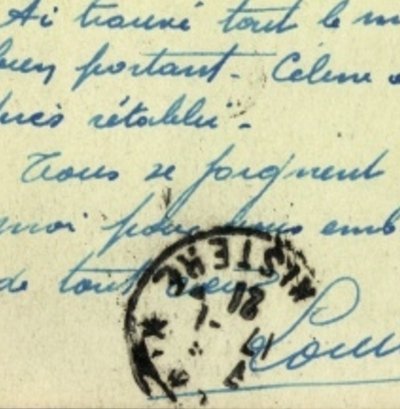 Ai trouvé tout le m
bien portant. Céline
rétabli.
Tous se joignent
moi pour vous emb
de tout coeur
Lou